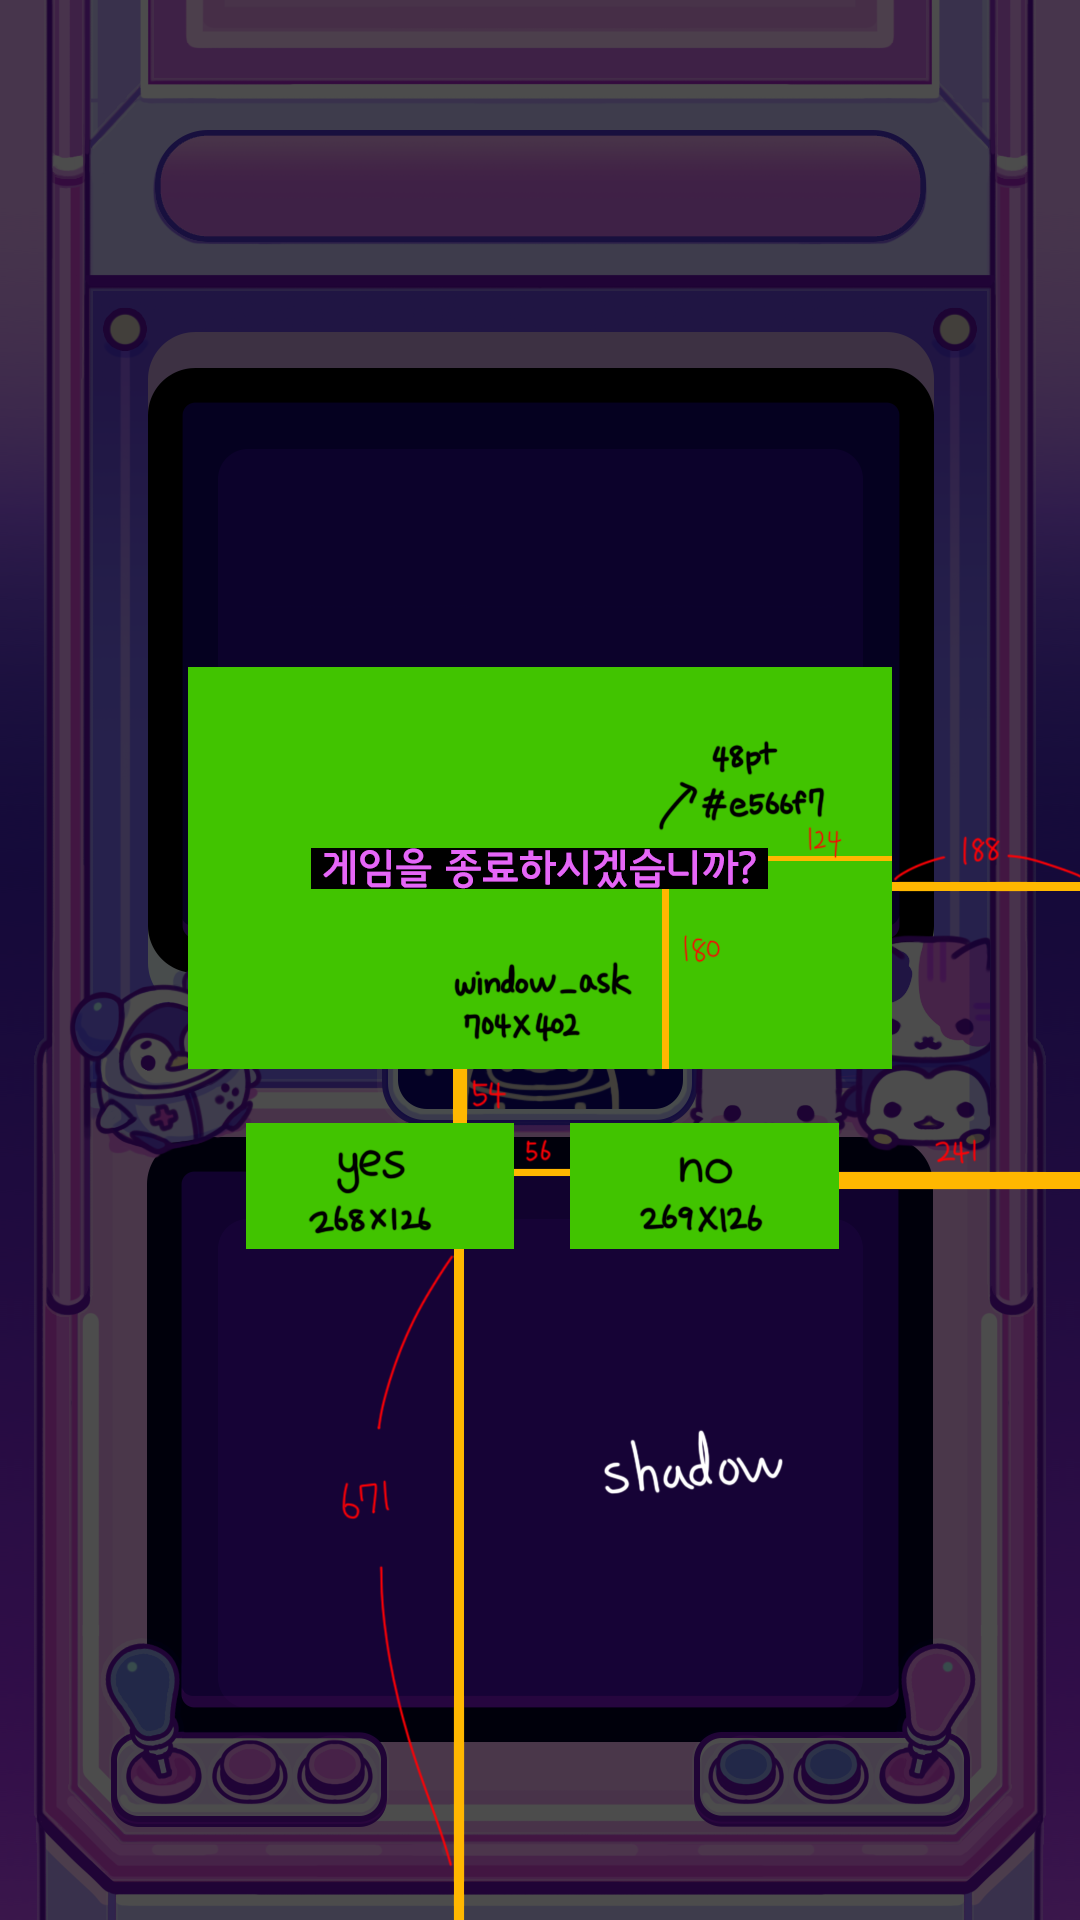 48pt
#e566f7
124
188
게임을 종료하시겠습니까?
180
window_ask
704X402
54
56
241
yes
268X126
no
269X126
shadow
671